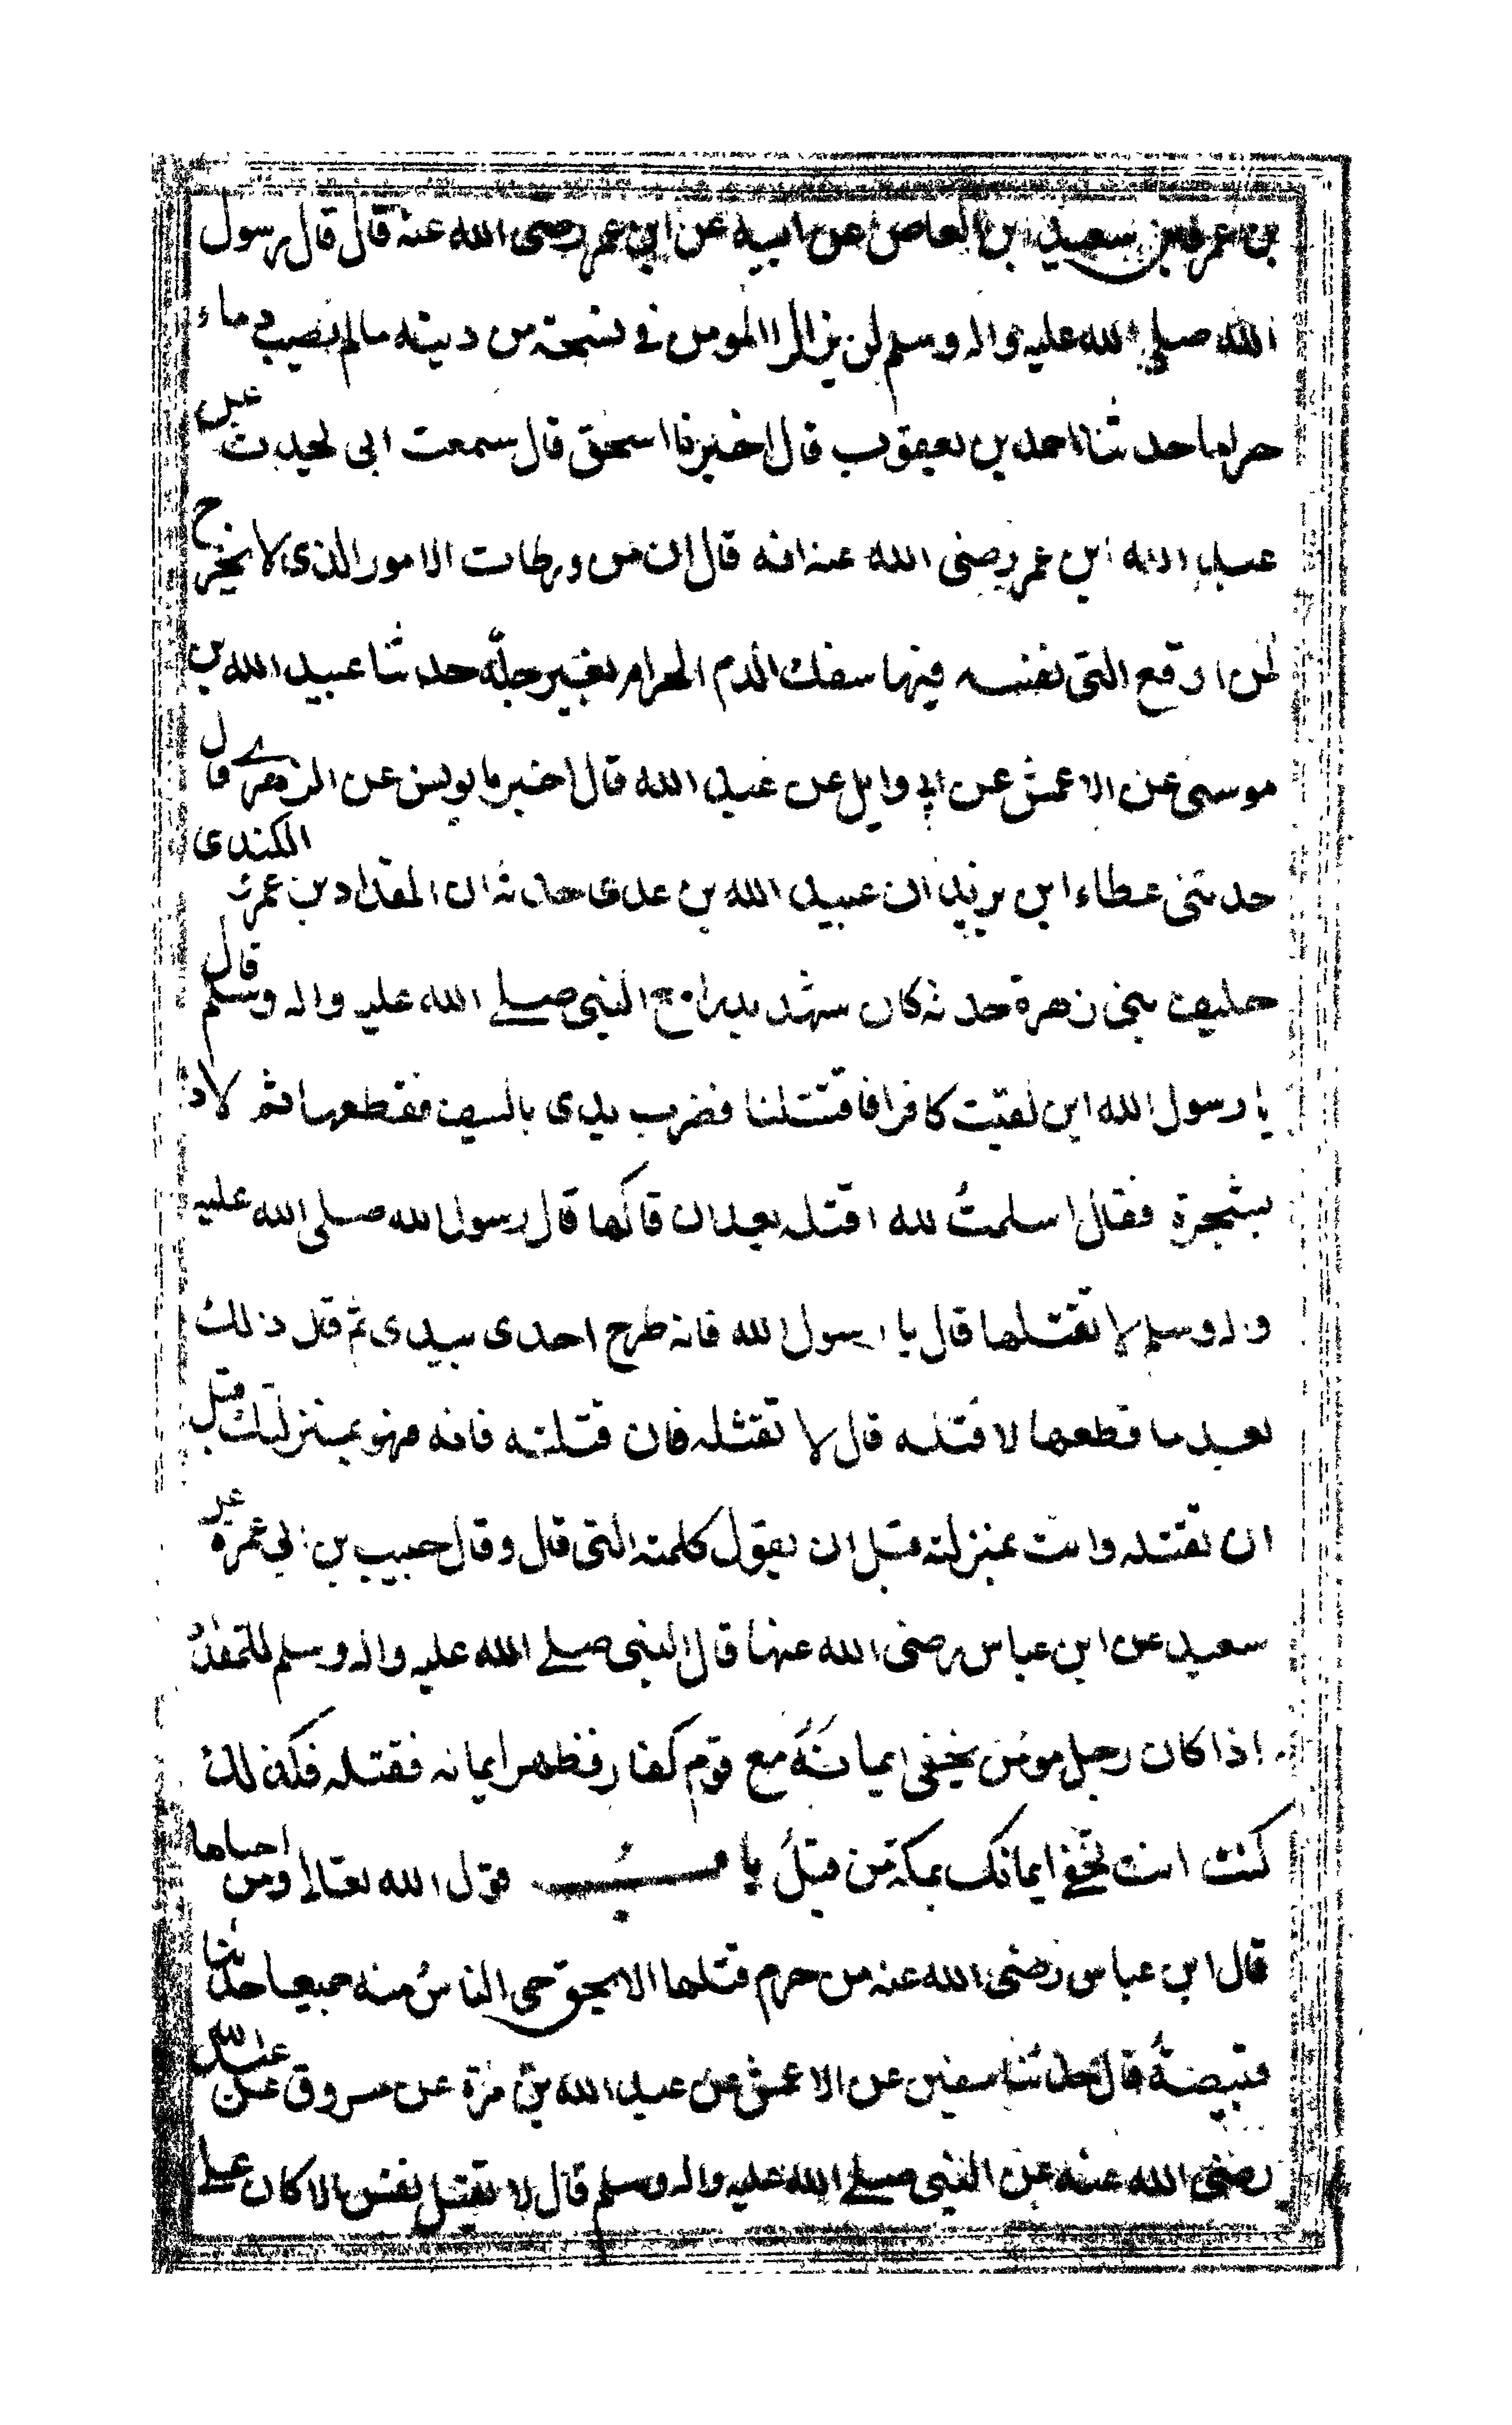 بن عمرو بن سعيد بن العاص عن ابيه عن ابن عمر رضى الله عنه قال قال رسول
الله صلى الله عليه واله وسلم لن يزال المومن فى فسحة من دينه مالم يصيب دماء
حراما حدثنا احمد بن يعقوب قال اخبرنا اسحق قال سمعت ابى يحدث عن
عبد الله ابن عمر رضى الله عنه انه قال ان من ورطات الامور الذى لا يخرج
لمن اوقع التى نفسه فيها سفك الدم الحرام بغير حله حدثنا عبيد الله بن
موسى عن الاعمش عن ابى وايل عن عبد الله قال اخبرنا يونس عن الزهرے قال
حدثنى عطاء ابن يزيد ان عبيد الله بن عدى حدثه ان المقداد بن عمرو الكندى
حليف بنى زهرة حدثه كان شهد بدرا مع النبى صلے الله عليه واله وسلم قال
يا رسول الله ان لقيت كافرا فاقتتلنا فضرب يدى بالسيف فقطعها ثم لاذ
بشجرة فقال اسلمتُ لله اقتله بعد ان قالها قال رسول الله صلى الله عليه
واله وسلم لا تقتلها قال يا رسول الله فانه طرح احدى بيدى ثم قال ذلك
بعد ما قطعها لاقتله قال لا تقتله فان قتلته فانه فهو بمنزلتك قبل
ان تقتله وانت بمنزلته قبل ان يقول كلمته التى قال وقال حبيب بن ابى عمرة عن
سعيد عن ابن عباس رضى الله عنها قال النبى صلے الله عليه واله وسلم للمقداد
اذا كان رجل مومن يخفى ايمانهُ مع قوم كفار فظهر ايمانه فقتله فكذلك
كنت انت تخفى ايمانك بمكة من قبل باب قول الله تعالى ومن احياها
قال ابن عباس رضى الله عنه من حرم قتلها الا بحق حى الناسُ منه جميعا حدثنا
قبيصة قال حدثنا سفين عن الاعمش عن عبد الله بن مرة عن مسروق عن عبد الله
رضى الله عنه عن النبى صلے الله عليه واله وسلم قال لا تقتل نفس الا كان على